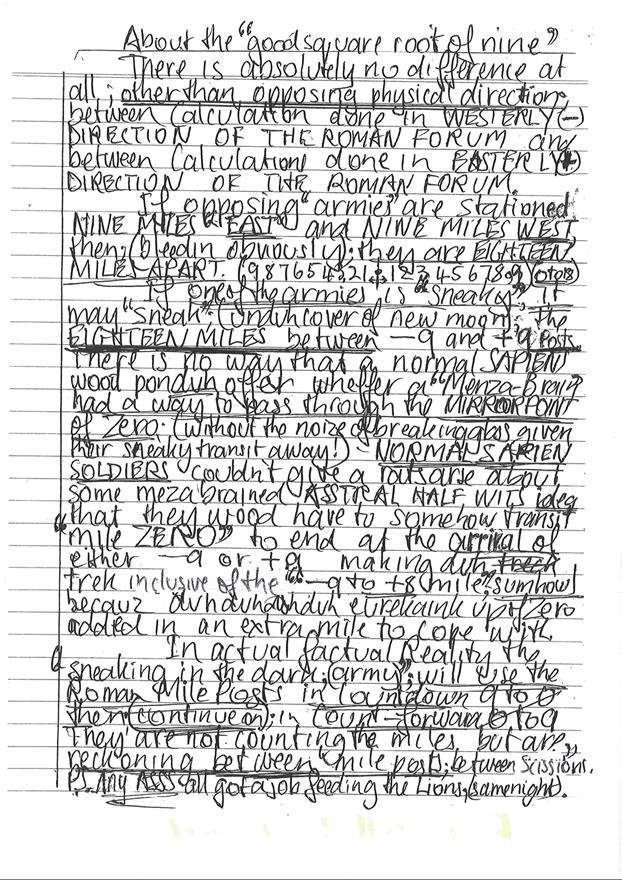 About the "good square root of nine"
There is absolutely no difference at
all; other than opposing physical directions
between Calculation done in WESTERLY (-)
DIRECTION OF THE ROMAN FORUM and
between Calculations done in EASTERLY (+)
DIRECTION OF THE ROMAN FORUM.
If opposing "armies" are stationed
NINE MILES "EAST" and NINE MILES WEST
then; (bleedin obviously); they are EIGHTEEN
MILES APART.
If one of the armies is "sneaky" it
may "sneak" (unduh cover of new moon) the
EIGHTEEN MILES between -9 and +9 Posts.
There is no way that a normal SAPIEN
wood ponduh offer wheffer a "Menza-Brain"
had a way to pass through the MIRRORPOINT
of Zero. (Without the noize of breaking glass given
their sneaky transit away!) - NORMAL SAPIEN
SOLDIERS couldn't give a ratsarse about
some meza brained ASSTRAL HALF WITS idea
that they wood have to somehow transit
"mile ZERO" to end at the arrival of
either -9 or +9 making duh
trek inclusive of the "-9 to +8 mile" sumhow
becauz duhduhduhduh eurekaink up of Zero
added in an extra mile to cope with.
In actual factual Reality the
sneaking in the dark army"; will use the
Roman Mile Posts in Countdown 9 to 0
then (continue on); in Count-forward 0 to 9
They are not counting the miles, but are
reckoning between "mile posts; between Scissions.
PS. Any ASSS all got a job feeding the Lions, (same night).